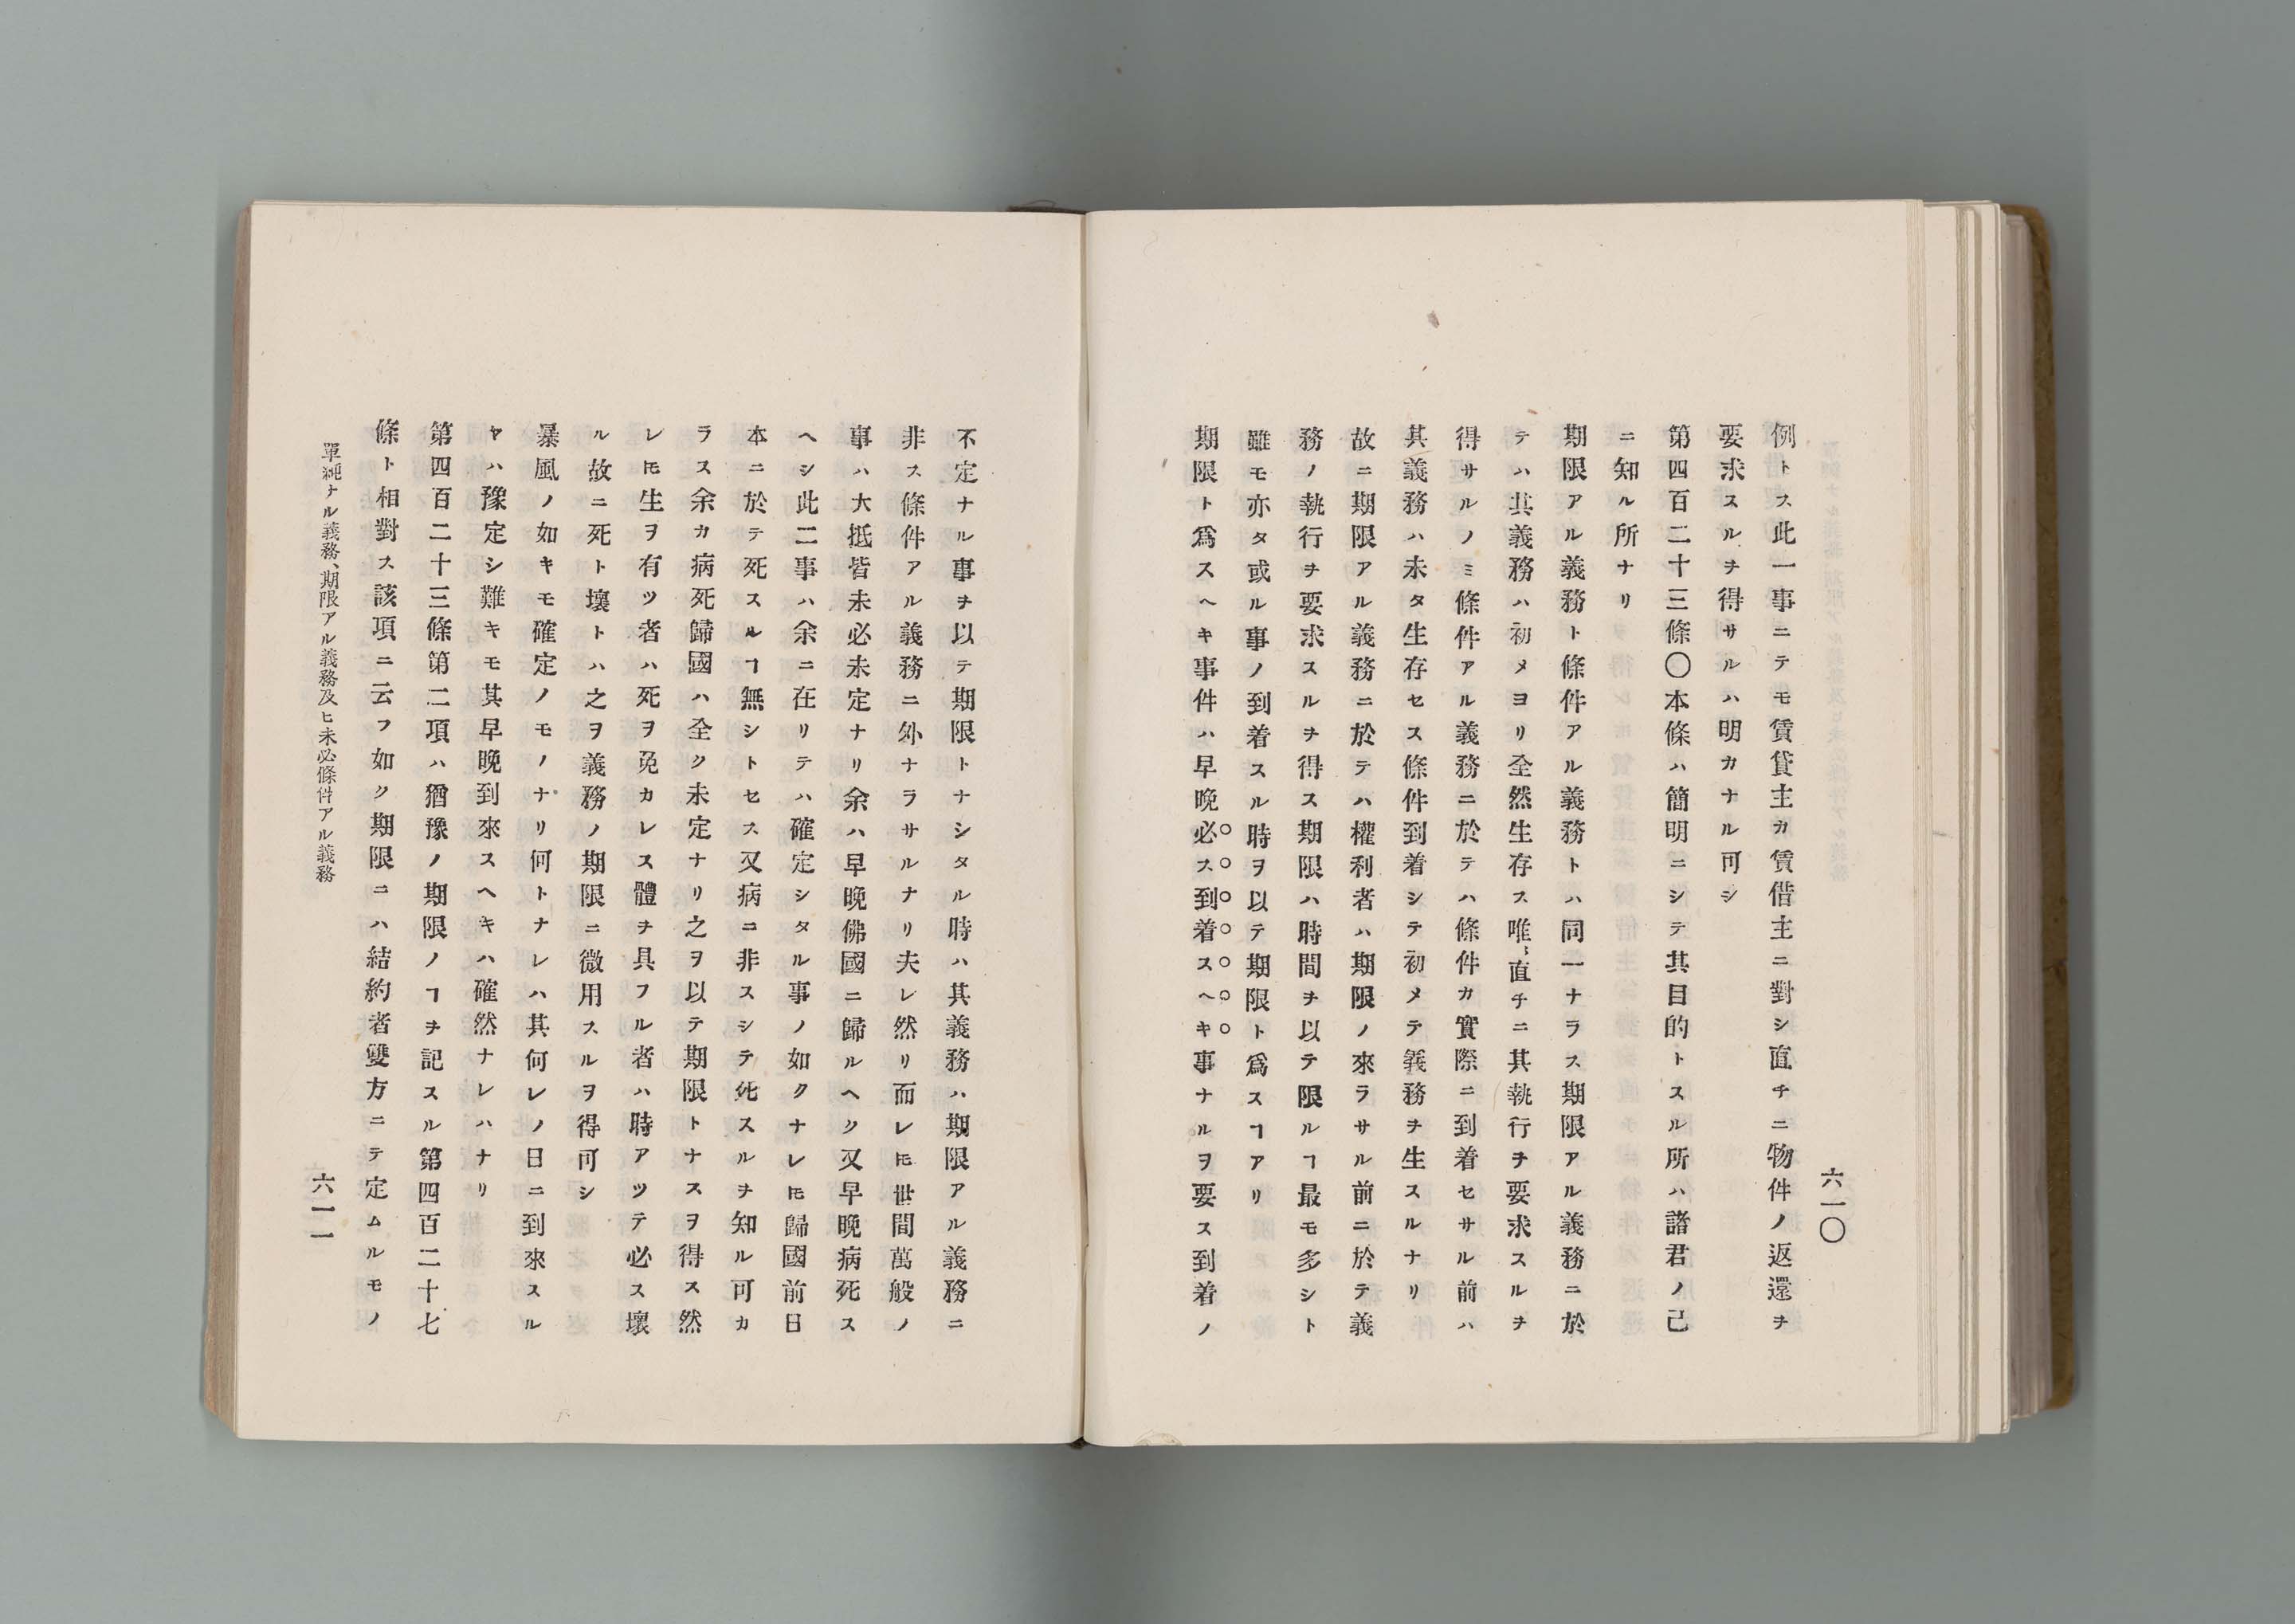 六一〇
例トス此一事ニテモ賃貸主カ賃借主ニ對シ直チニ物件ノ返還ヲ
要求スルヲ得サルハ明カナル可シ
第四百二十三條〇本條ハ簡明ニシテ其目的トスル所ハ諸君ノ己
ニ知ル所ナリ
期限アル義務ト條件アル義務トハ同一ナラス期限アル義務ニ於
テハ其義務ハ初メヨリ全然生存ス唯直チニ其執行ヲ要求スルヲ
得サルノミ條件アル義務ニ於テハ條件カ實際ニ到着セサル前ハ
其義務ハ未タ生存セス條件到着シテ初メテ義務ヲ生スルナリ
故ニ期限アル義務ニ於テハ權利者ハ期限ノ來ラサル前ニ於テ義
務ノ執行ヲ要求スルヲ得ス期限ハ時間ヲ以テ限ルヿ最モ多シト
雖モ亦タ或ル事ノ到着スル時ヲ以テ期限ト爲スヿアリ
期限ト爲スヘキ事件ハ早晩必ス到着スヘキ事ナルヲ要ス到着ノ
不定ナル事ヲ以テ期限トナシタル時ハ其義務ハ期限アル義務ニ
非ス條件アル義務ニ外ナラサルナリ夫レ然リ而レ𪜈世間萬般ノ
事ハ大抵皆未必未定ナリ余ハ早晩佛國ニ歸ルヘク又早晩病死ス
ヘシ此二事ハ余ニ在リテハ確定シタル事ノ如クナレ𪜈歸國前日
本ニ於テ死スルヿ無シトセス又病ニ非スシテ死スルヲ知ル可カ
ラス余カ病死歸國ハ全ク未定ナリ之ヲ以テ期限トナスヲ得ス然
レ𪜈生ヲ有ツ者ハ死ヲ免カレス體ヲ具フル者ハ時アツテ必ス壞
ル故ニ死ト壞トハ之ヲ義務ノ期限ニ微用スルヲ得可シ
暴風ノ如キモ確定ノモノナリ何トナレハ其何レノ日ニ到來スル
ヤハ豫定シ難キモ其早晩到來スヘキハ確然ナレハナリ
第四百二十三條第二項ハ猶豫ノ期限ノヿヲ記スル第四百二十七
條ト相對ス該項ニ云フ如ク期限ニハ結約者雙方ニテ定ムルモノ
單純ナル義務、期限アル義務及ヒ未必條件アル義務
六一一